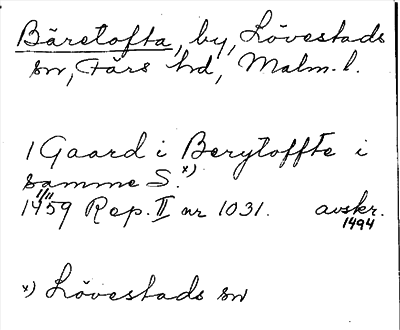 Bäretofta, by, Lövestads
sn, Färs hd, Malm. l.
1 Gaard i Berytoffte i
samme S. x)
1459 Rep. II nr 1031. avskr.
1494
x) Lövestads sn